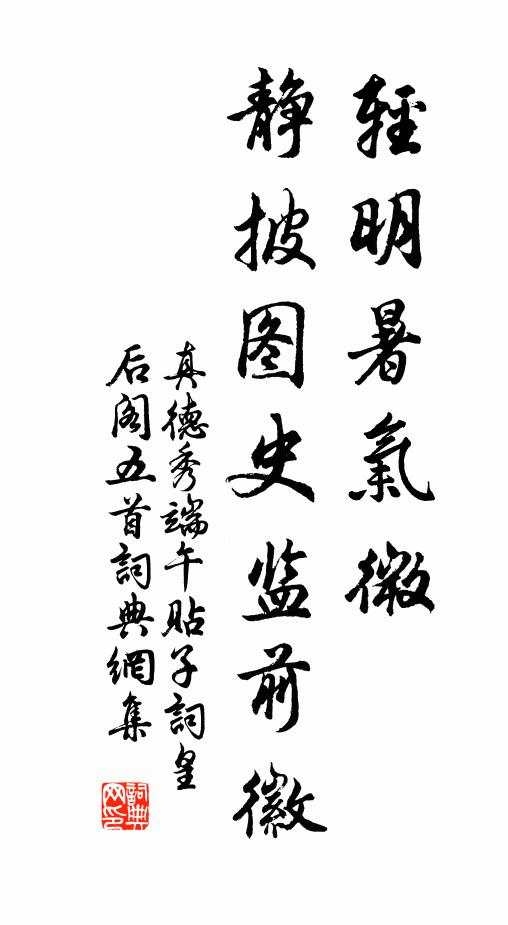 輕明暑氣微
静披图史监前徽
真德秀端午貼子詞皇
后阁五首詞典網集
詞典
网印